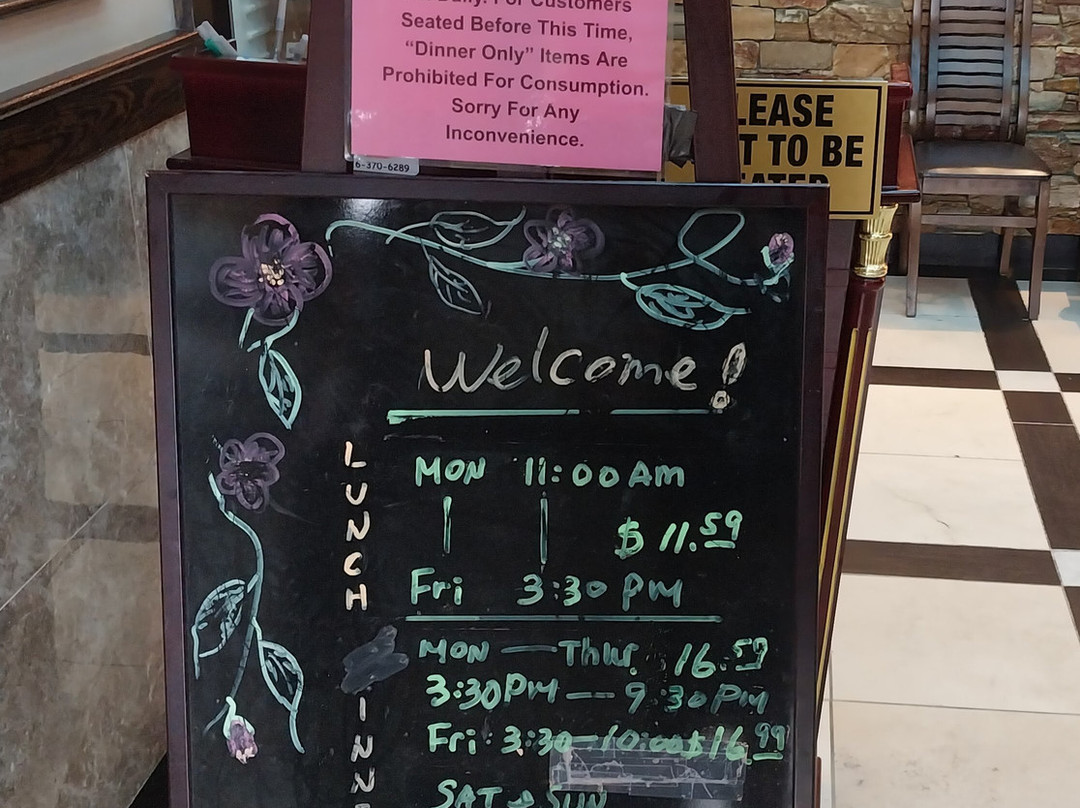 Daily. For Customers
Seated Before This Time,
“Dinner Only” Items Are
Prohibited For Consumption.
Sorry For Any
Inconvenience.
6-370-6289
LEASE
T TO BE
Welcome!
LUNCH
MON 11:00 Am
$ 11.59
Fri 3:30 pm
INN
MON — Thur 16.59
3:30PM — 9:30PM
Fri: 3:30-10:00 $16.99
SAT SUN